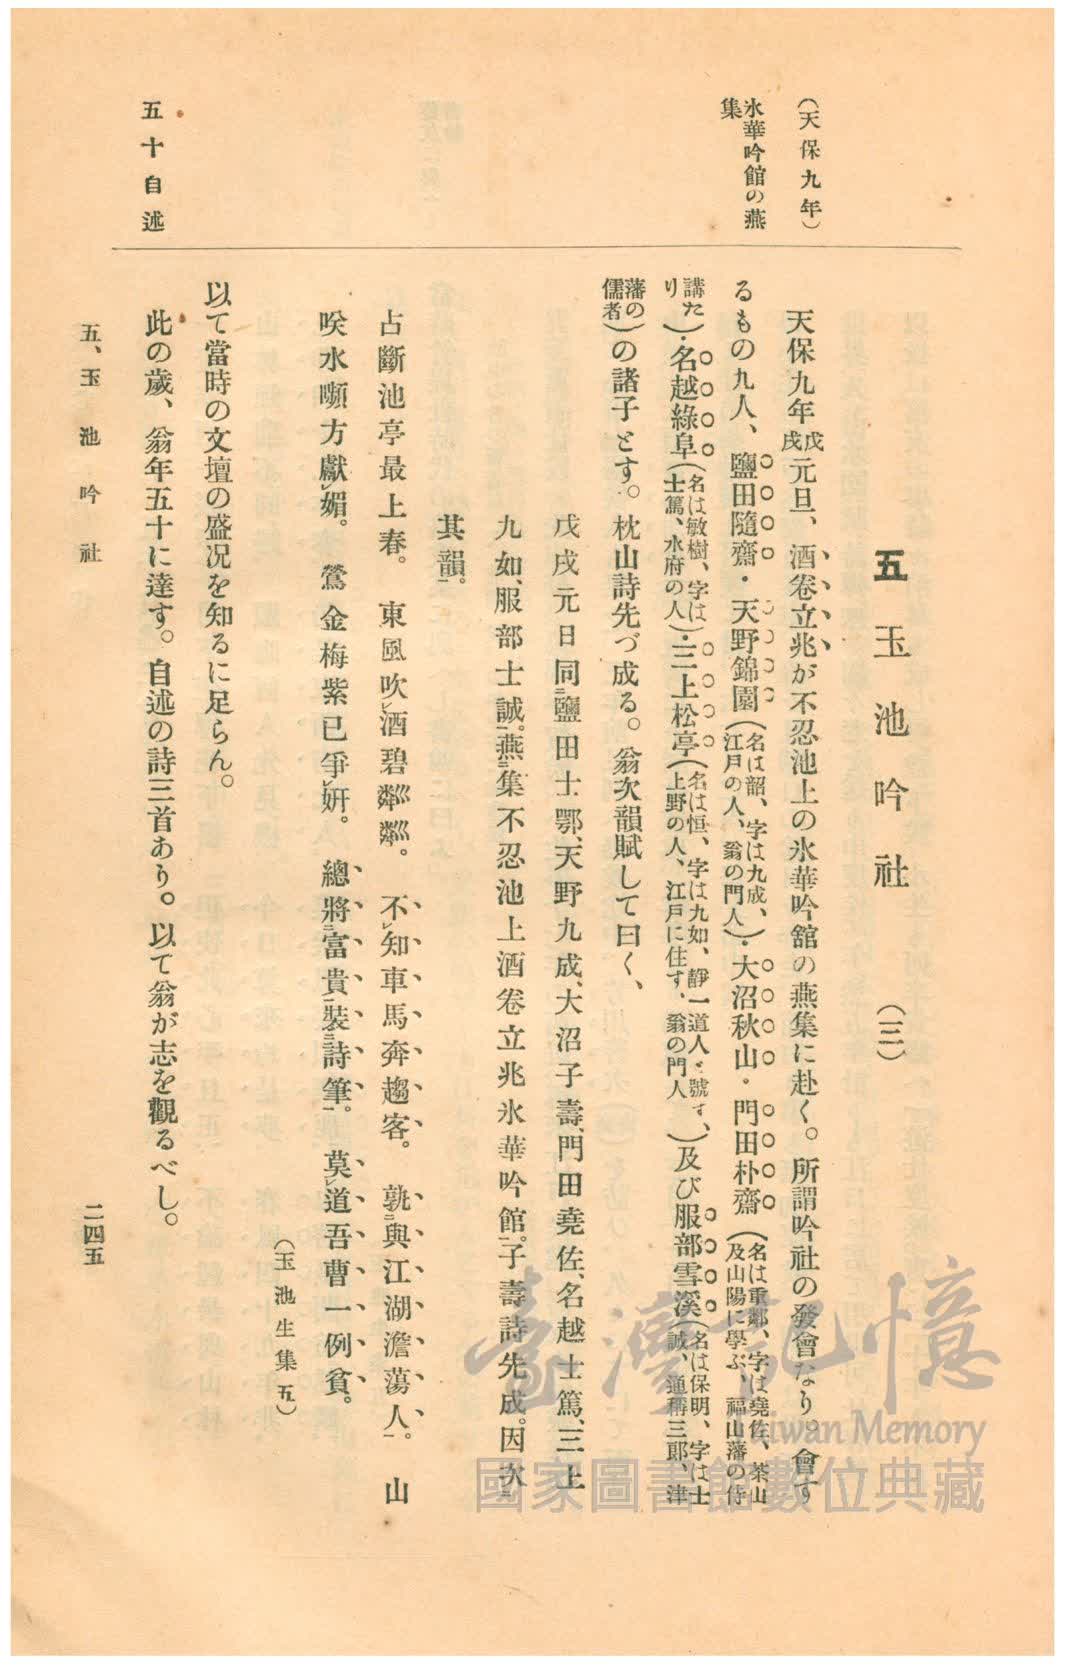 （天保九年）
氷華吟館の燕
集
五十自述
五　玉池吟社　（三）
天保九年戊戌元旦、酒卷立兆が不忍池上の氷華吟舘の燕集に赴く。所謂吟社の發會なり。會す
るもの九人、鹽田隨齋・天野錦園（名は韶、字は九成、江戸の人、翁の門人）・大沼秋山・門田朴齋（名は重鄰、字は堯佐、茶山及山陽に學ぶ、福山藩の侍
講たり）・名越綠阜（名は敏樹、字は士篤、水府の人）・三上松亭（名は恒、字は九如、靜一道人と號す、上野の人、江戸に住す、翁の門人）及び服部雪溪（名は保明、字は士誠、通稱三郎、津
藩の儒者）の諸子とす。枕山詩先づ成る。翁次韻賦して曰く、
戊戌元日同ニ鹽田士鄂、天野九成、大沼子壽、門田堯佐、名越士篤、三上
九如、服部士誠一。燕ニ集不忍池上酒卷立兆氷華吟館一。子壽詩先成。因次ニ
其韻一。
占斷池亭最上春。　東風吹レ酒碧粼粼。　不レ知車馬奔趨客。　孰ニ與江湖澹蕩人一。　山
咲水嚬方獻レ媚。　鶯金梅紫已爭レ妍。　總將ニ富貴一裝ニ詩筆一。　莫レ道吾曹一例貧。
（玉池生集五）
以て當時の文壇の盛况を知るに足らん。
此の歲、翁年五十に達す。自述の詩三首あり。以て翁が志を觀るべし。
五、玉池吟社
二四五
臺灣記憶
Taiwan Memory
國家圖書館數位典藏